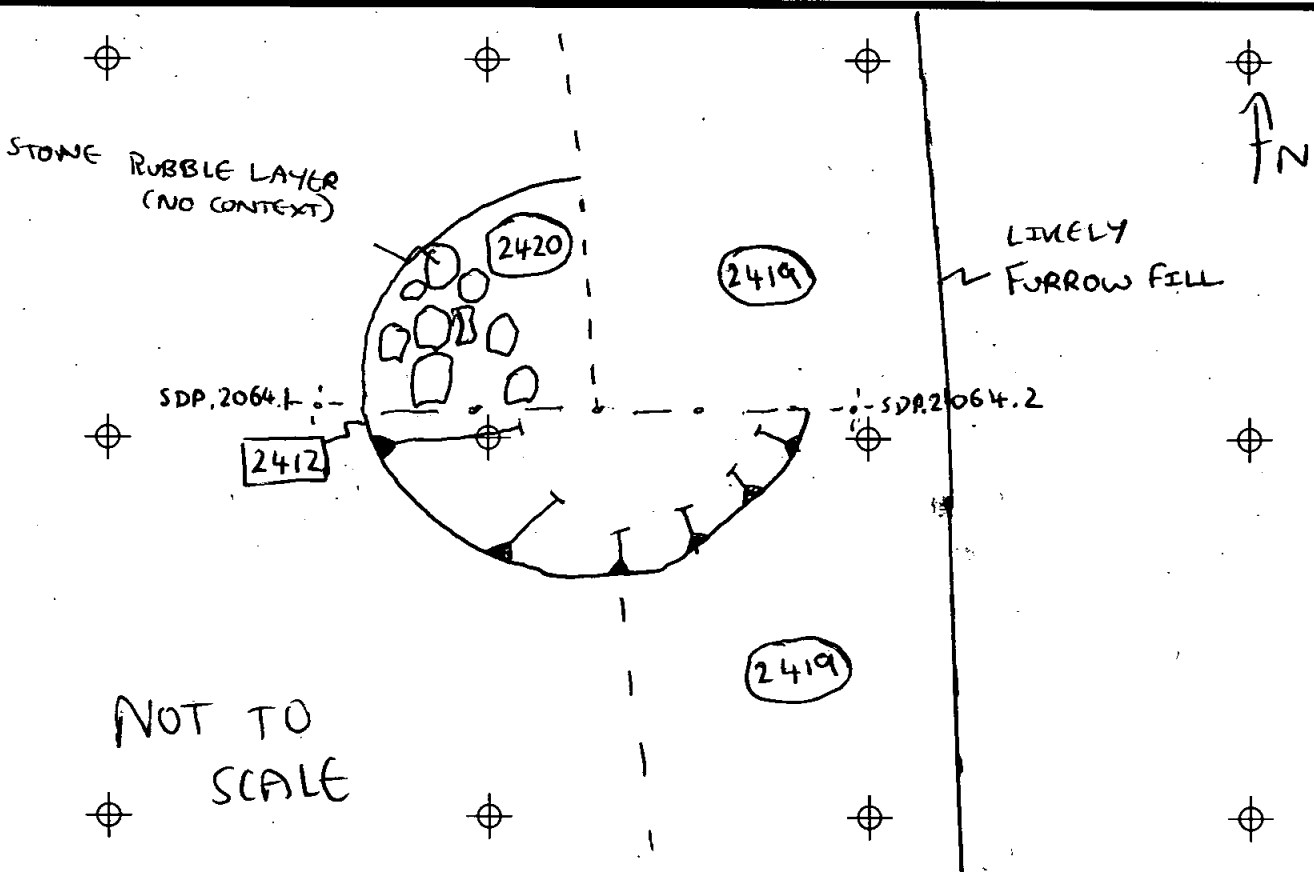 STONE RUBBLE LAYER
(NO CONTEXT)
2420
2419
N
LIKELY
FURROW FILL
SDP.2064.1
SDP.2064.2
2412
2419
NOT TO
SCALE